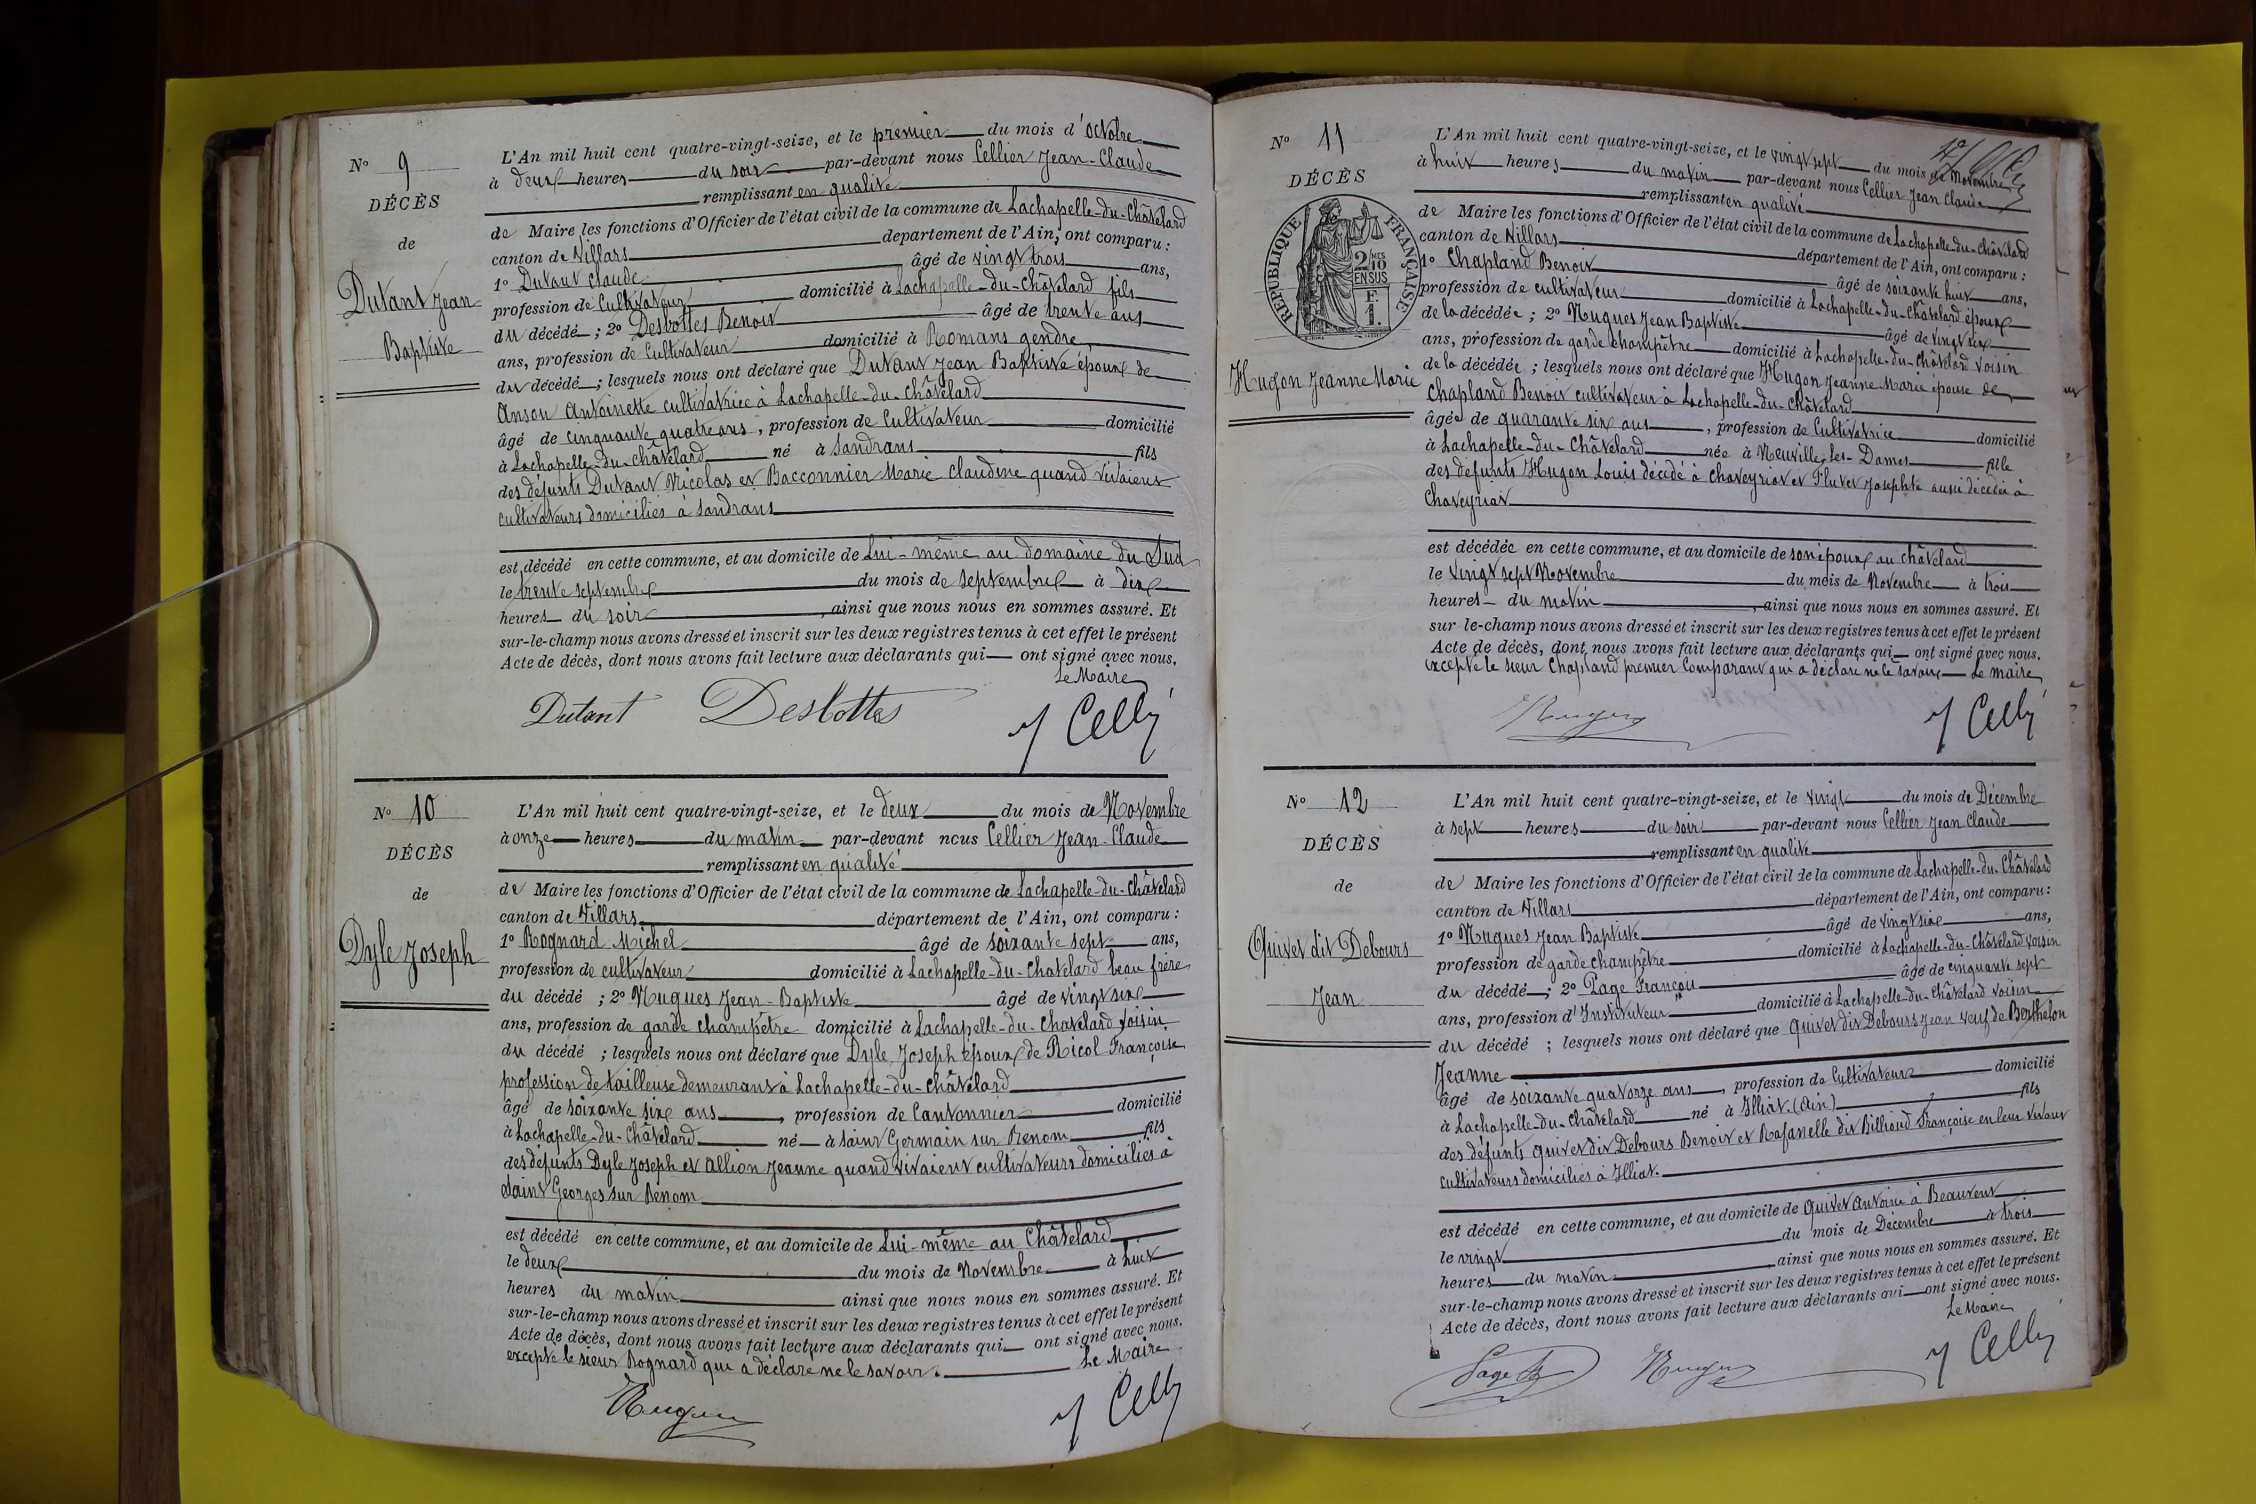 N° 9
DÉCÈS
de
Dutant Jean
Baptiste
L'An mil huit cent quatre-vingt-seize, et le premier du mois d'octobre
à deux heures du soir par-devant nous Cellier Jean-Claude
remplissant en qualité
de Maire les fonctions d'Officier de l'état civil de la commune de Lachapelle-du-Châtelard
canton de Villars département de l'Ain, ont comparu :
1° Dutant Claude âgé de vingt trois ans,
profession de Cultivateur domicilié à Lachapelle-du-Châtelard fils
du décédé ; 2° Desbottes Benoit âgé de trente ans
ans, profession de Cultivateur domicilié à Romans gendre,
du décédé ; lesquels nous ont déclaré que Dutant Jean Baptiste époux de
Anson Antoinette cultivatrice à Lachapelle-du-Châtelard
âgé de cinquante quatre ans, profession de Cultivateur domicilié
à Lachapelle-du-Châtelard né à Sandrans fils
des défunts Dutant Nicolas et Bacconnier Marie Claudine quand vivaient
cultivateurs domiciliés à Sandrans
est décédé en cette commune, et au domicile de Lui-même au domaine du Sud
le trente septembre du mois de septembre à dix
heures du soir, ainsi que nous nous en sommes assuré. Et
sur-le-champ nous avons dressé et inscrit sur les deux registres tenus à cet effet le présent
Acte de décès, dont nous avons fait lecture aux déclarants qui ont signé avec nous.
Le Maire
Dutant Desbottes J Celli
N° 10
DÉCÈS
de
Dyle Joseph
L'An mil huit cent quatre-vingt-seize, et le deux du mois de Novembre
à onze heures du matin par-devant nous Cellier Jean-Claude
remplissant en qualité
de Maire les fonctions d'Officier de l'état civil de la commune de Lachapelle-du-Châtelard
canton de Villars département de l'Ain, ont comparu :
1° Rognard Michel âgé de soixante sept ans,
profession de cultivateur domicilié à Lachapelle-du-Chatelard beau frère
du décédé ; 2° Nugues Jean-Baptiste âgé de vingt six
ans, profession de garde champêtre domicilié à Lachapelle-du-Chatelard voisin
du décédé ; lesquels nous ont déclaré que Dyle Joseph époux de Ricol Françoise
profession de tailleuse demeurans à Lachapelle-du-Châtelard
âgé de soixante six ans, profession de Cantonnier domicilié
à Lachapelle-du-Châtelard né à Saint Germain sur Renom fils
des défunts Dyle Joseph et Allion Jeanne quand vivaient cultivateurs domiciliés à
Saint Georges sur Renom
est décédé en cette commune, et au domicile de Lui-même au Châtelard
le deux du mois de Novembre à huit
heures du matin ainsi que nous nous en sommes assuré. Et
sur-le-champ nous avons dressé et inscrit sur les deux registres tenus à cet effet le présent
Acte de décès, dont nous avons fait lecture aux déclarants qui ont signé avec nous.
excepté le sieur Rognard qui a déclaré ne le savoir. Le Maire
Nugues J Celli
N° 11
DÉCÈS
RÉPUBLIQUE FRANÇAISE
2 MES 10
EN SUS
F. 1.
Hugon Jeanne Marie
L'An mil huit cent quatre-vingt-seize, et le vingt sept du mois de Novembre
à huit heures du matin par-devant nous Cellier Jean Claude
remplissant en qualité
de Maire les fonctions d'Officier de l'état civil de la commune de Lachapelle-du-Châtelard
canton de Villars département de l'Ain, ont comparu :
1° Chapland Benoit âgé de soixante huit ans,
profession de cultivateur domicilié à Lachapelle-du-Châtelard époux
de la décédée ; 2° Nugues Jean Baptiste âgé de vingt six
ans, profession de garde champêtre domicilié à Lachapelle-du-Châtelard voisin
de la décédée ; lesquels nous ont déclaré que Hugon Jeanne Marie épouse de
Chapland Benoit cultivateur à Lachapelle-du-Châtelard
âgée de quarante six ans, profession de Cultivatrice domicilié
à Lachapelle-du-Châtelard née à Neuville-les-Dames fille
des défunts Hugon Louis décédé à Chaveyriat et Fluvet Josephte aussi décédée à
Chaveyriat
est décédée en cette commune, et au domicile de son époux au Châtelard
le vingt sept Novembre du mois de Novembre à trois
heures du matin, ainsi que nous nous en sommes assuré. Et
sur-le-champ nous avons dressé et inscrit sur les deux registres tenus à cet effet le présent
Acte de décès, dont nous avons fait lecture aux déclarants qui ont signé avec nous.
excepté le sieur Chapland premier comparant qui a déclaré ne le savoir Le maire
Nugues J Celli
N° 12
DÉCÈS
de
Quivet dit Debours
Jean
L'An mil huit cent quatre-vingt-seize, et le vingt du mois de Décembre
à sept heures du soir par-devant nous Cellier Jean Claude
remplissant en qualité
de Maire les fonctions d'Officier de l'état civil de la commune de Lachapelle-du-Châtelard
canton de Villars département de l'Ain, ont comparu :
1° Nugues Jean Baptiste âgé de vingt six ans,
profession de garde champêtre domicilié à Lachapelle-du-Châtelard voisin
du décédé ; 2° Page François âgé de cinquante sept
ans, profession d'Instituteur domicilié à Lachapelle-du-Châtelard voisin
du décédé ; lesquels nous ont déclaré que Quivet dit Debours Jean veuf de Berthelon
Jeanne
âgé de soixante quatorze ans, profession de Cultivateur domicilié
à Lachapelle-du-Châtelard né à Illiat (Ain) fils
des défunts Quivet dit Debours Benoit et Rafanelle dit Billioud Françoise en leur vivant
cultivateurs domiciliés à Illiat.
est décédé en cette commune, et au domicile de Quivet Antoine à Beauvent
le vingt du mois de Décembre à trois
heures du matin ainsi que nous nous en sommes assuré. Et
sur-le-champ nous avons dressé et inscrit sur les deux registres tenus à cet effet le présent
Acte de décès, dont nous avons fait lecture aux déclarants qui ont signé avec nous.
Le Maire
Page Nugues J Celli